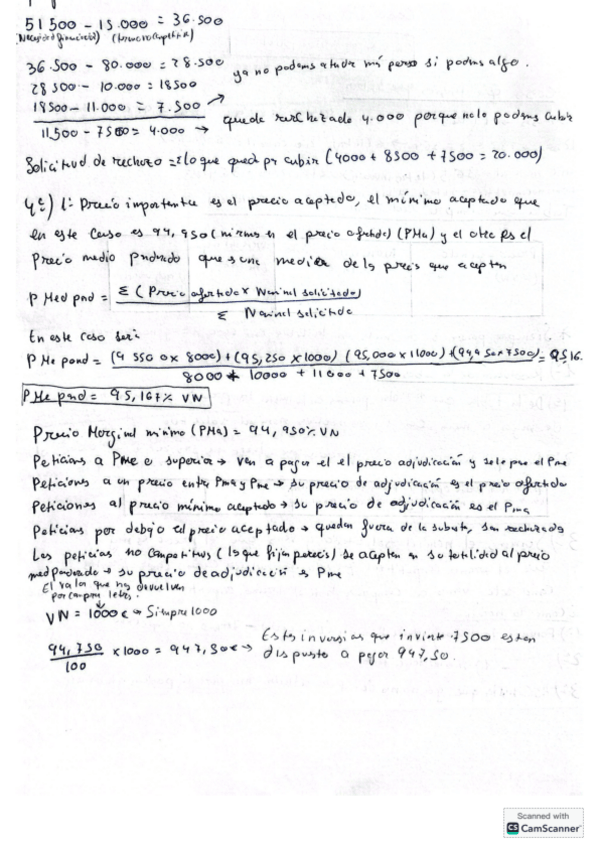 51500 - 15.000 = 36.500
(Necesidad financiera) (No competitiva)
36.500 - 80.000 = 28.500
28500 - 10.000 = 18500
18500 - 11.000 = 7.500 → ya no podems si podems algo.
11,500 - 7500 = 4.000 → queda rechazado 4.000 porque no lo podems cubrir
Solicitud de rechazo = lo que queda pr cubrir (4000 + 8500 + 7500 = 20.000)
4º) 1: Precio importante es el precio aceptado, el mínimo aceptado que
en este caso es 94,950 (mirams en el precio ofertado) (PMa) y el otro es el
Precio medio Pondrado que es una media de los precis que aceptan
P Med pnd = Σ (Precio ofertado x Nominal solicitado)
Σ Nominal solicitado
En este caso seri:
P Me pond = (9 550 0 x 8000) + (95,250 x 1000) (95,000 x 11000) + (94,950 x 7500) = 95,16.
8000 + 10000 + 11000 + 7500
P Me pnd = 95,167% VN
Precio Marginal minimo (PMa) = 94,950% VN
Peticions a Pme o superia → van a pagar el el precio adjudicación y solo pan el Pme
Peticions a un precio entre Pma y Pme → su precio de adjudicación es el precio ofertado
Peticions al precio mínimo aceptado → su precio de adjudicación es el Pma
Peticias por debajo del precio aceptado → quedan fuera de la subasta, san rechazado
Las peticias no competitivas (lo que fijan precis) se aceptan en su totalidad al precio
med Pondrado → su precio de adjudicación es Pme
El valor que nos devuelven
por comprar letras.
VN = 1000€ → Siempre 1000
94,750 x 1000 = 947,50€ → Estos inversias que invirte 7500 estan
100 dispusto a pagar 947,50.
Scanned with
CS CamScanner